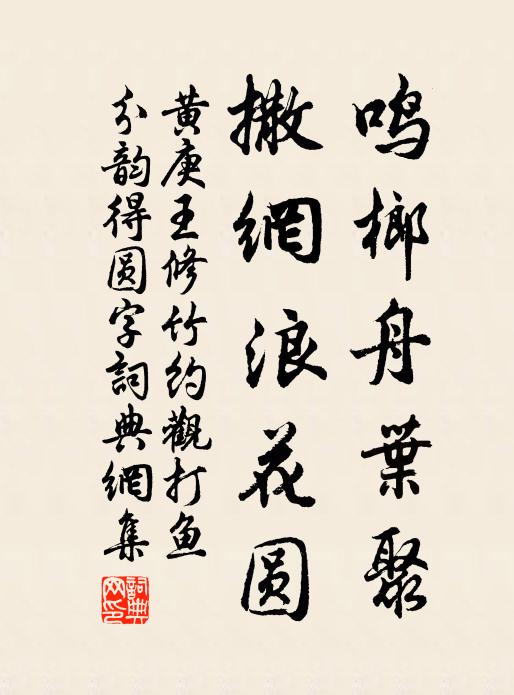 鸣榔舟葉聚
撒網浪花圆
黄庚王修竹约觀打鱼
分韵得圆字詞典網集
詞典網印